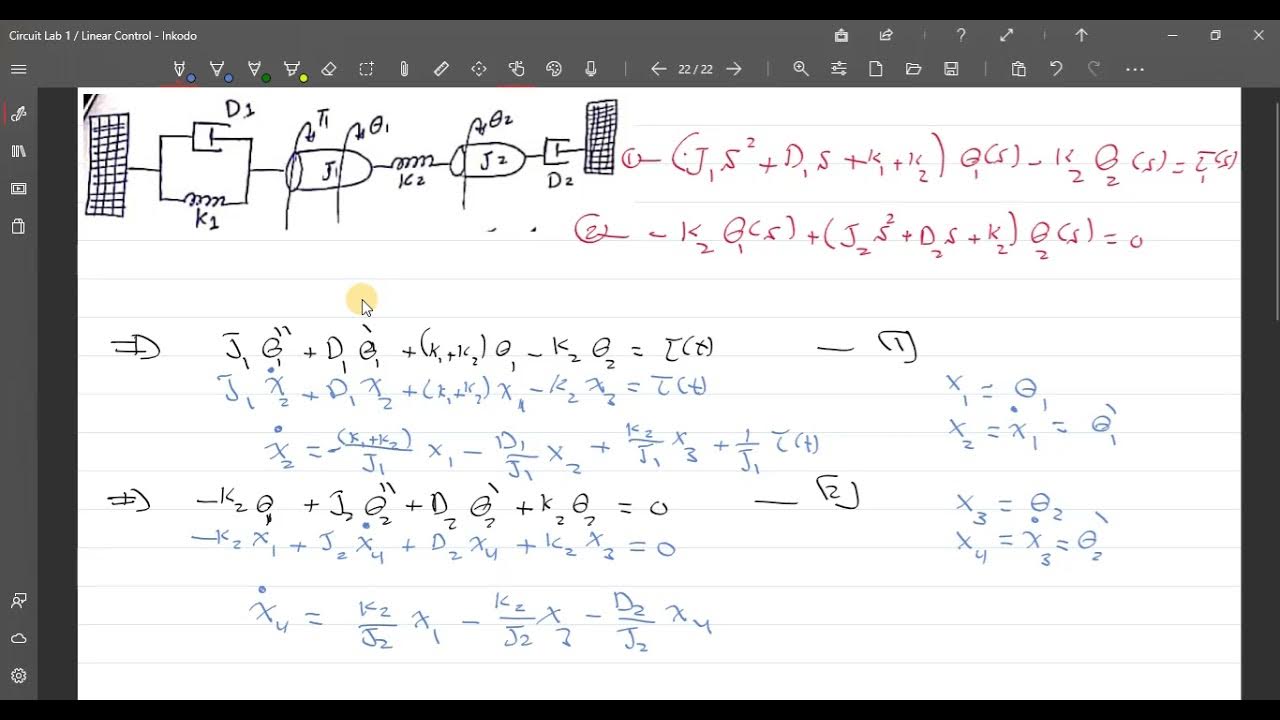 Circuit Lab 1 / Linear Control - Inkodo
22 / 22
D1
T1
θ1
θ2
J1
J2
K2
D2
K1
① — (J₁s² + D₁s + K₁ + K₂) θ₁(s) – K₂ θ₂(s) = τ₁(s)
② — – K₂ θ₁(s) + (J₂s² + D₂s + K₂) θ₂(s) = 0
⇒ J₁ θ₁'' + D₁ θ₁' + (K₁+K₂) θ₁ – K₂ θ₂ = τ(t) — [1]
J₁ ẋ₂ + D₁ x₂ + (K₁+K₂) x₁ – K₂ x₃ = τ(t)
x₁ = θ₁
x₂ = ẋ₁ = θ₁'
ẋ₂ = –(K₁+K₂)/J₁ x₁ – D₁/J₁ x₂ + K₂/J₁ x₃ + 1/J₁ τ(t)
⇒ –K₂ θ₁ + J₂ θ₂'' + D₂ θ₂' + K₂ θ₂ = 0 — [2]
x₃ = θ₂
–K₂ x₁ + J₂ ẋ₄ + D₂ x₄ + K₂ x₃ = 0
x₄ = ẋ₃ = θ₂'
ẋ₄ = K₂/J₂ x₁ – K₂/J₂ x₃ – D₂/J₂ x₄